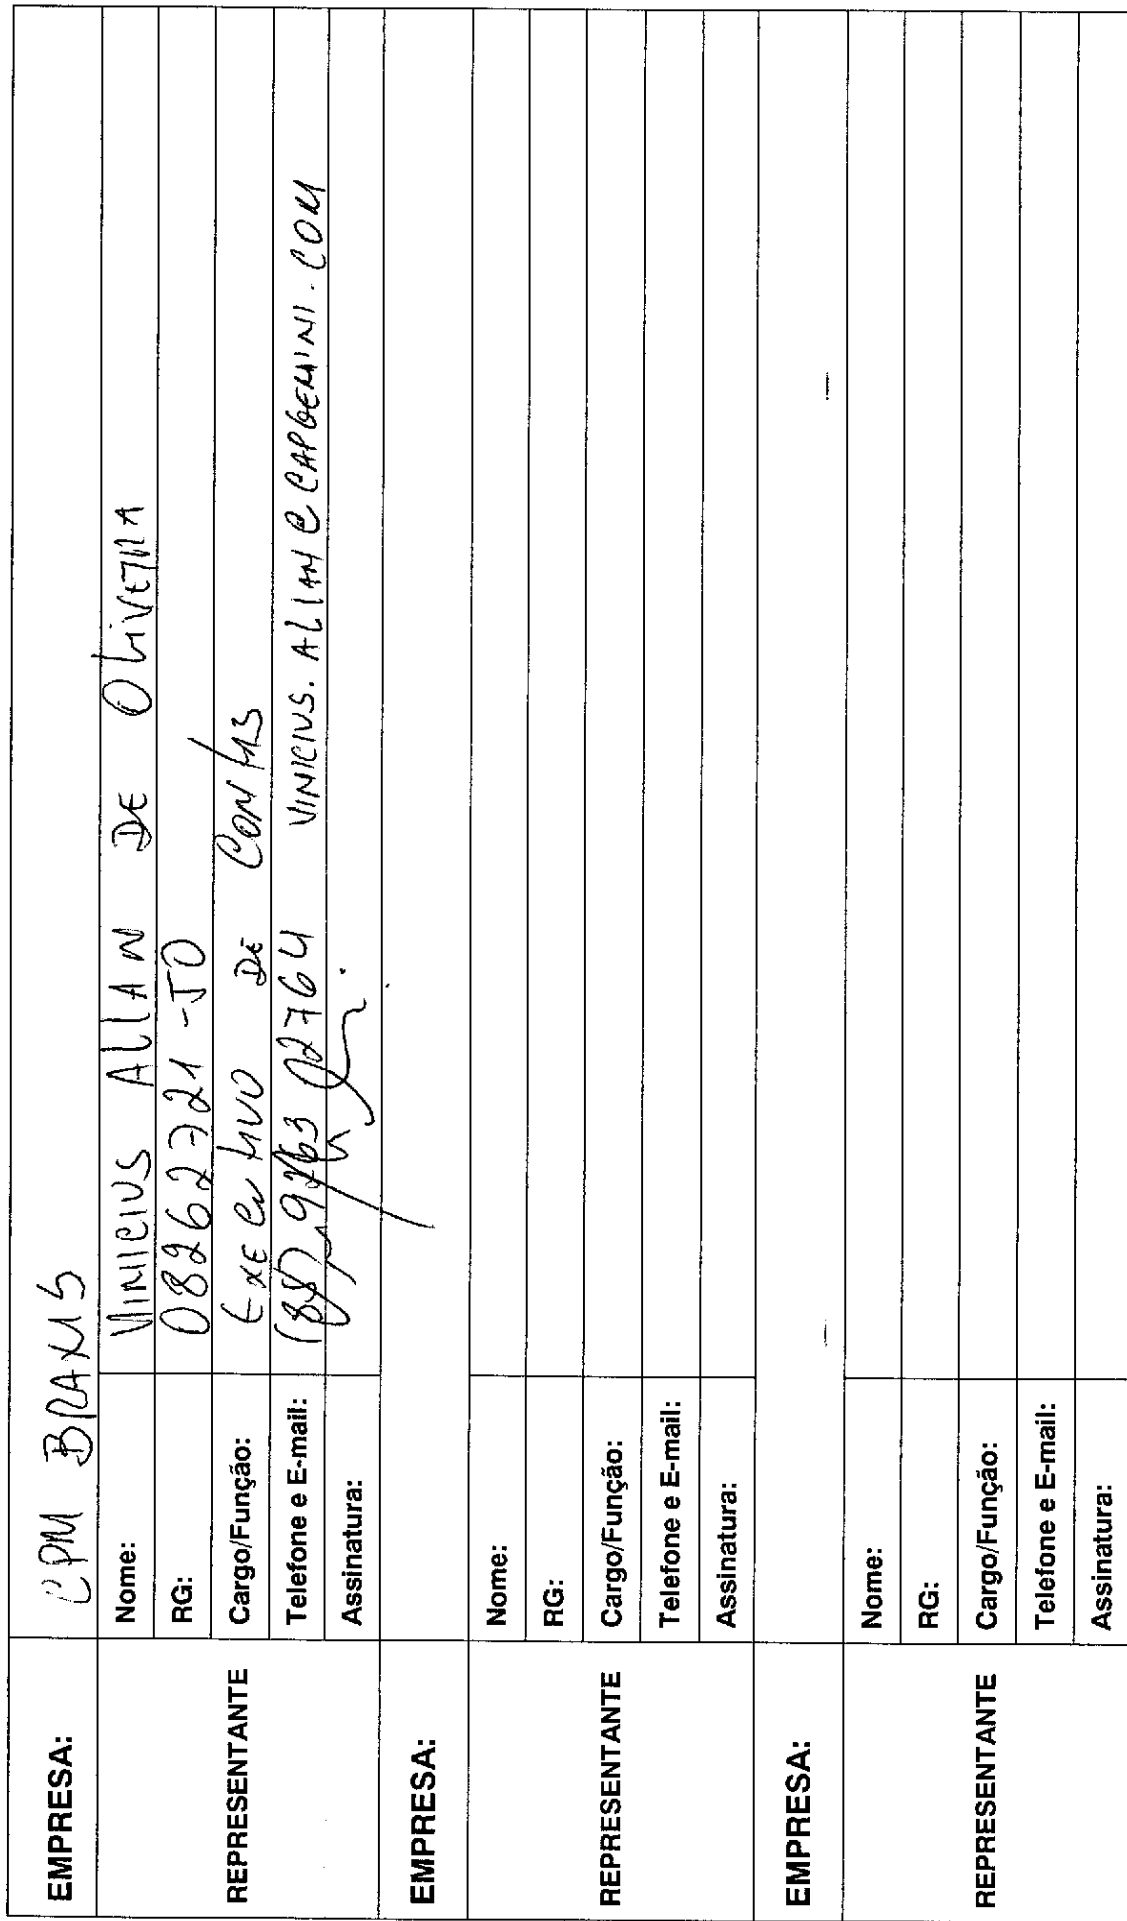 EMPRESA: CPM BRAXIS
REPRESENTANTE
Nome: VINICIUS ALLAN DE OLIVEIRA
RG: 082627721-50
Cargo/Função: EXECUTIVO DE CONTAS
Telefone e E-mail: VINICIUS.ALLAN@CAPGEMINI.COM
Assinatura:
EMPRESA:
REPRESENTANTE
Nome:
RG:
Cargo/Função:
Telefone e E-mail:
Assinatura:
EMPRESA:
REPRESENTANTE
Nome:
RG:
Cargo/Função:
Telefone e E-mail:
Assinatura: